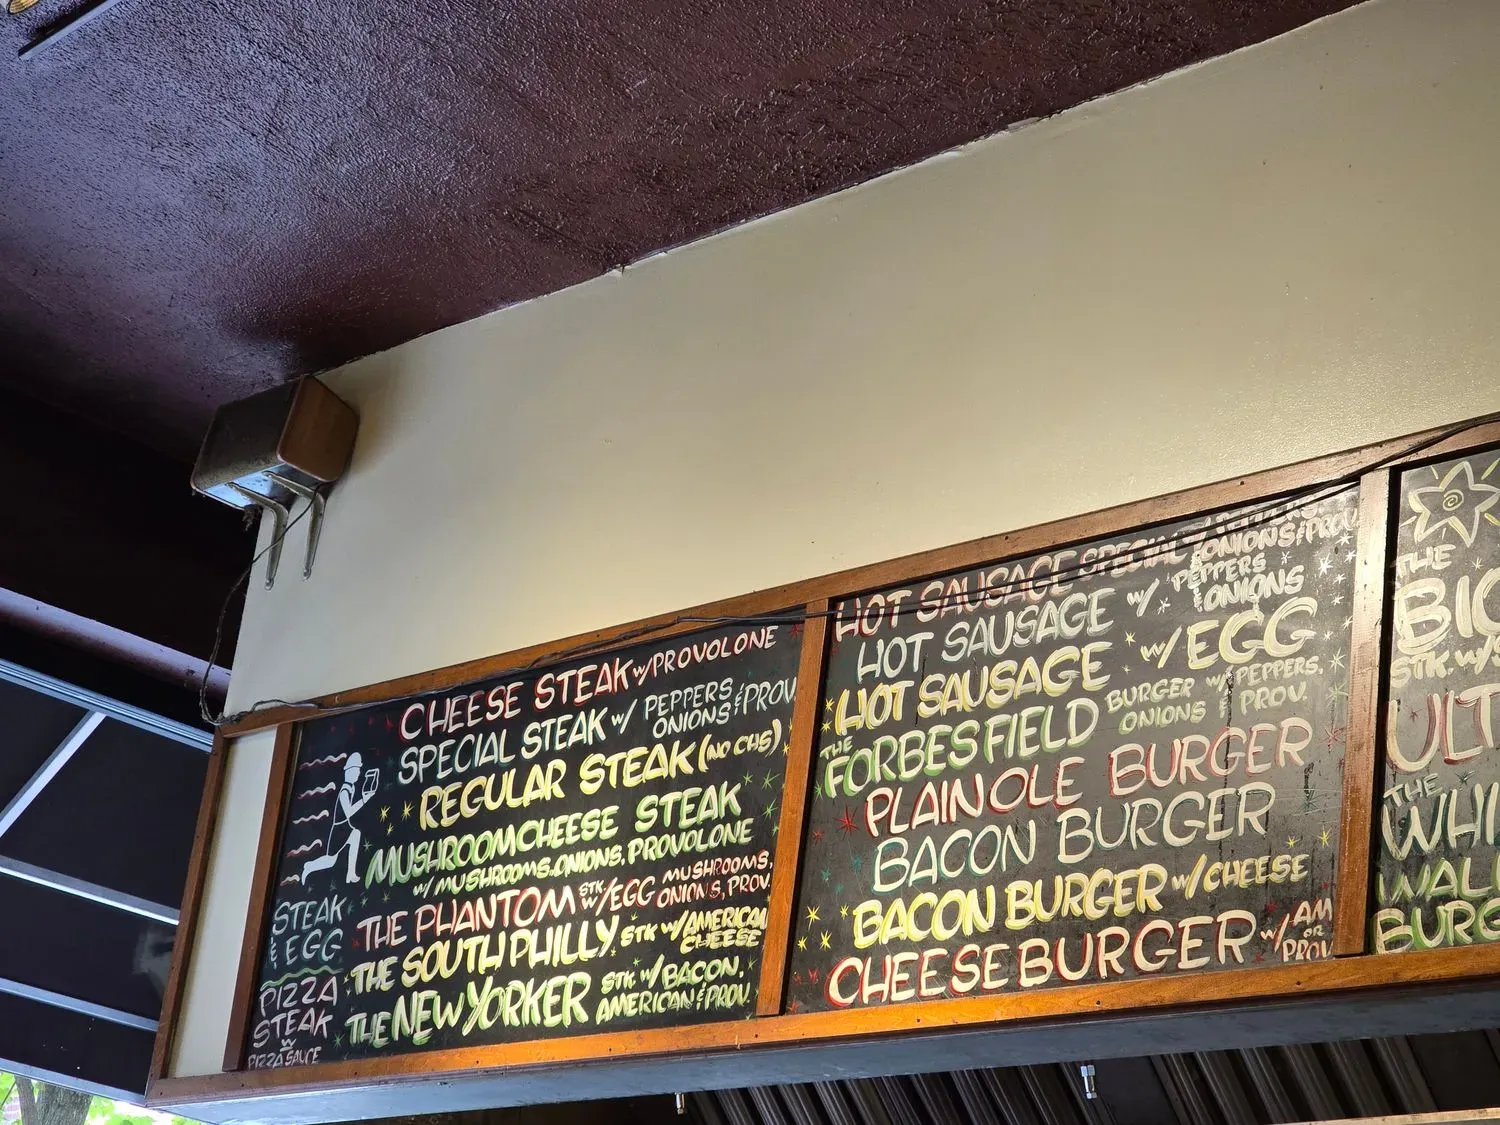 CHEESE STEAK w/PROVOLONE
SPECIAL STEAK w/ PEPPERS ONIONS & PROV
REGULAR STEAK (NO CHS)
MUSHROOM CHEESE STEAK
w/ MUSHROOMS, ONIONS, PROVOLONE
THE PHANTOM STK. w/EGG MUSHROOMS, ONIONS, PROV.
THE SOUTH PHILLY STK w/AMERICAN CHEESE
THE NEW YORKER STK w/BACON, AMERICAN & PROV.
STEAK
& EGG
PIZZA
STEAK
w
PIZZA SAUCE
HOT SAUSAGE SPECIAL w/ PEPPERS, ONIONS & PROV.
HOT SAUSAGE w/ PEPPERS & ONIONS
HOT SAUSAGE w/EGG
THE FORBES FIELD BURGER w/ PEPPERS, ONIONS & PROV.
PLAIN OLE BURGER
BACON BURGER
BACON BURGER w/CHEESE
CHEESEBURGER w/ AM OR PROV
THE
BIG
STK. w/
ULT
THE
WHI
WAL
BURG